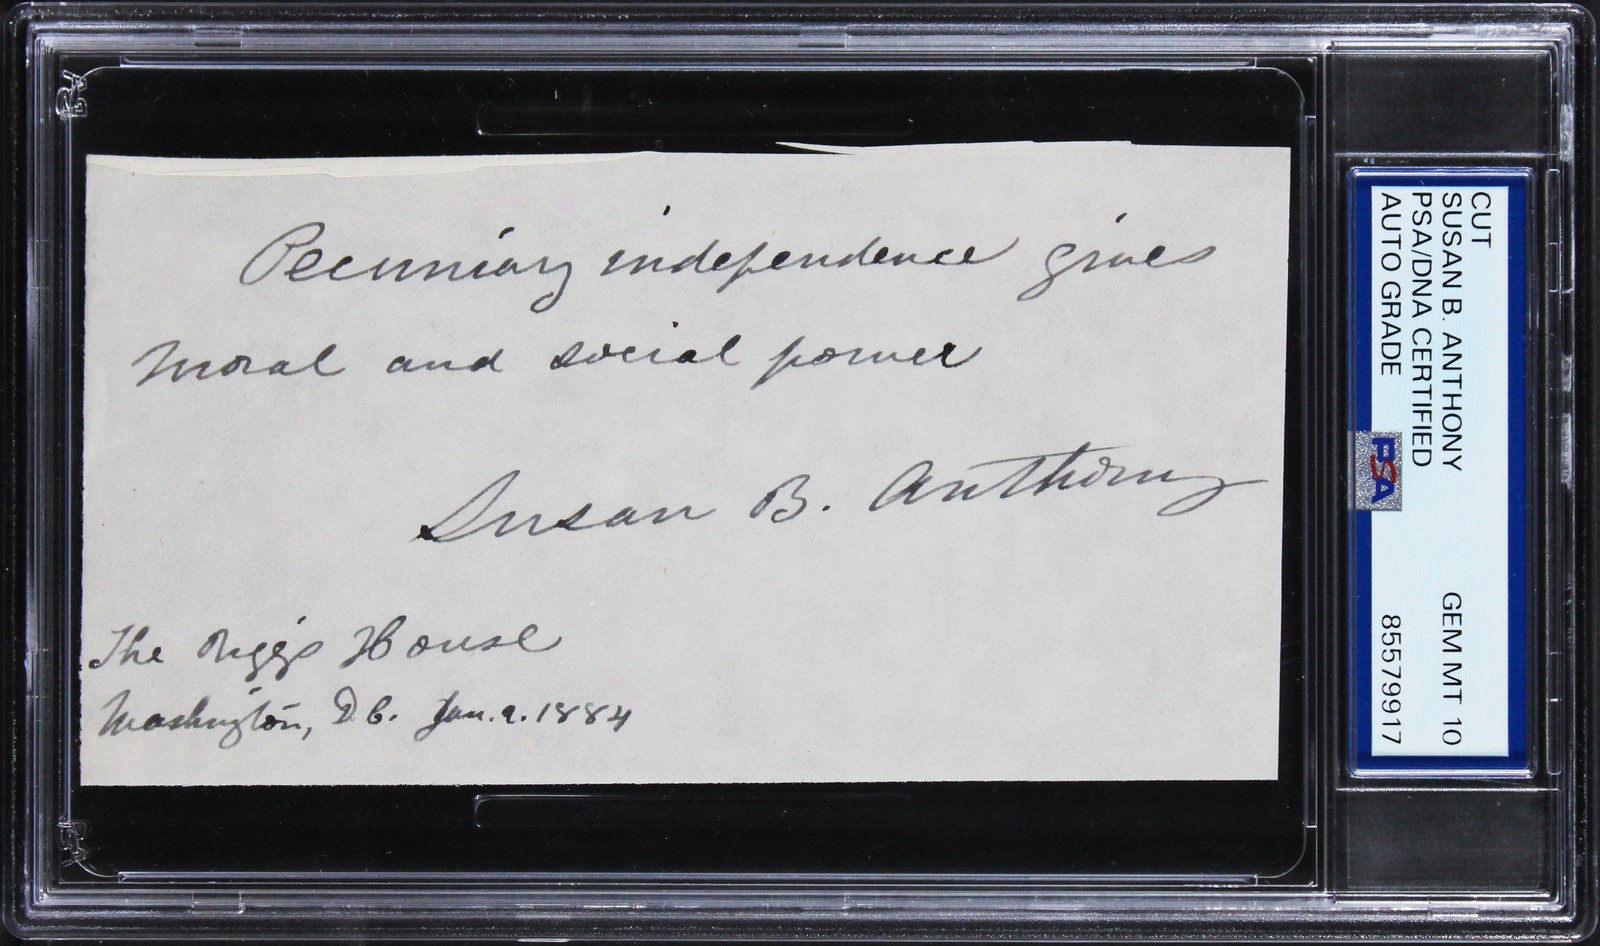 Pecuniary independence gives
moral and social power
Susan B. Anthony
The Riggs House
Washington, D.C. Jan. 9. 1884
CUT
SUSAN B. ANTHONY GEM MT 10
PSA/DNA CERTIFIED
AUTO GRADE 85579917
PSA